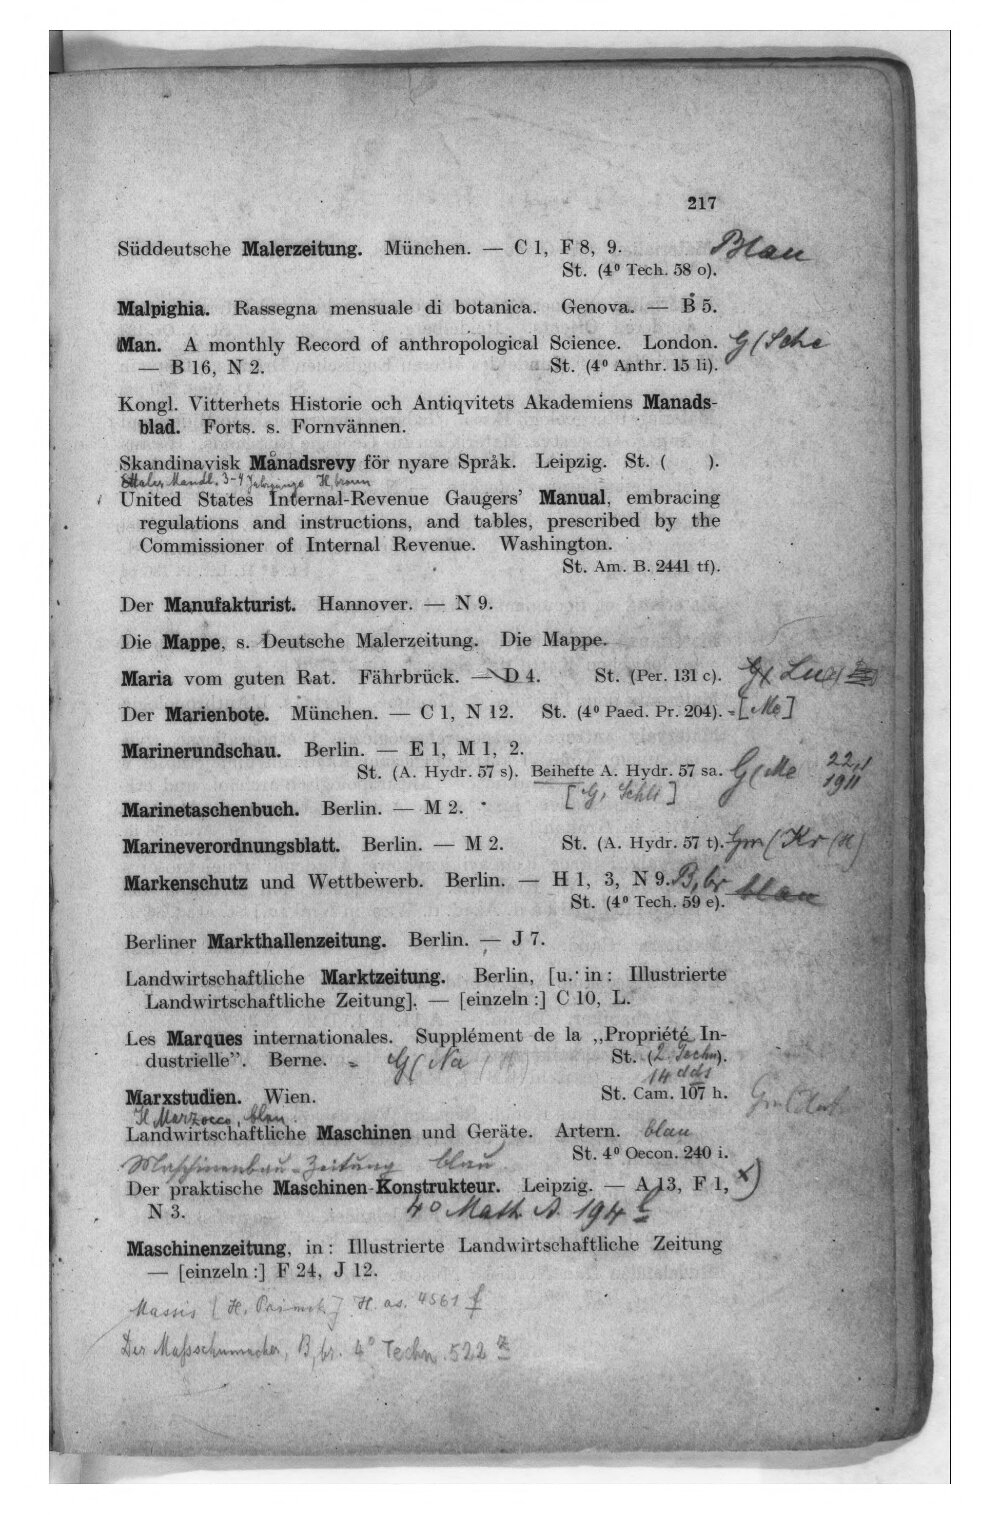 217
Süddeutsche Malerzeitung. München. — C 1, F 8, 9. Blau
St. (4⁰ Tech. 58 o).
Malpighia. Rassegna mensuale di botanica. Genova. — B 5.
Man. A monthly Record of anthropological Science. London. G (Sche
— B 16, N 2. St. (4⁰ Anthr. 15 li).
Kongl. Vitterhets Historie och Antiqvitets Akademiens Manads-
blad. Forts. s. Fornvännen.
Skandinavisk Månadsrevy för nyare Språk. Leipzig. St. ( ).
Ettaler Mandl. 3-4 Jahrgänge H, braun
United States Internal-Revenue Gaugers’ Manual, embracing
regulations and instructions, and tables, prescribed by the
Commissioner of Internal Revenue. Washington.
St. Am. B. 2441 tf).
Der Manufakturist. Hannover. — N 9.
Die Mappe, s. Deutsche Malerzeitung. Die Mappe.
Maria vom guten Rat. Fährbrück. — D 4. St. (Per. 131 c).
Der Marienbote. München. — C 1, N 12. St. (4⁰ Paed. Pr. 204). [Me]
Marinerundschau. Berlin. — E 1, M 1, 2.
St. (A. Hydr. 57 s). Beihefte A. Hydr. 57 sa. G (Me 22,1
1911
[G, Schls]
Marinetaschenbuch. Berlin. — M 2.
Marineverordnungsblatt. Berlin. — M 2. St. (A. Hydr. 57 t). Gm (Kr (H)
Markenschutz und Wettbewerb. Berlin. — H 1, 3, N 9. B, br blau
St. (4⁰ Tech. 59 e).
Berliner Markthallenzeitung. Berlin. — J 7.
Landwirtschaftliche Marktzeitung. Berlin, [u. in: Illustrierte
Landwirtschaftliche Zeitung]. — [einzeln:] C 10, L.
Les Marques internationales. Supplément de la „Propriété In-
dustrielle”. Berne. = G (Na (H) St. (2 Techn).
14 dds
Marxstudien. Wien. St. Cam. 107 h.
Il Marzocco, blau
Landwirtschaftliche Maschinen und Geräte. Artern. blau
St. 4⁰ Oecon. 240 i.
Maschinenbau-Zeitung blau
Der praktische Maschinen-Konstrukteur. Leipzig. — A 13, F 1, x)
N 3. 4⁰ Math. A. 194
Maschinenzeitung, in: Illustrierte Landwirtschaftliche Zeitung
— [einzeln:] F 24, J 12.
Massis H. as. 4561 f
Der Maßschumacher, B, br. 4⁰ Techn. 522 z